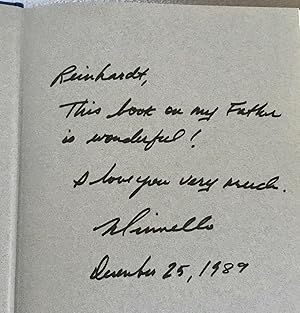 Reinhardt,
This book on my Father
is wonderful!
I love you very much.
December 25, 1989